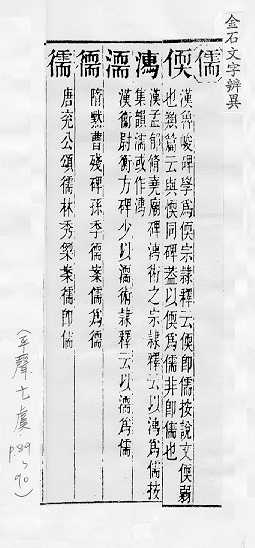 金石文字辨異
儒
偄 漢魯峻碑學爲偄宗隸釋云偄即儒按說文偄弱
也類篇云與愞同碑蓋以偄爲儒非即儒也
漢孟郁脩堯廟碑 術之宗隸釋云以 爲儒按
集韻濡或作
濡 漢衛尉衡方碑少以濡術隸釋云以濡爲儒
隋 曹殘碑孫季 案 爲儒
唐兗公頌 林秀 案 即儒
(平聲七虞 P89~90)